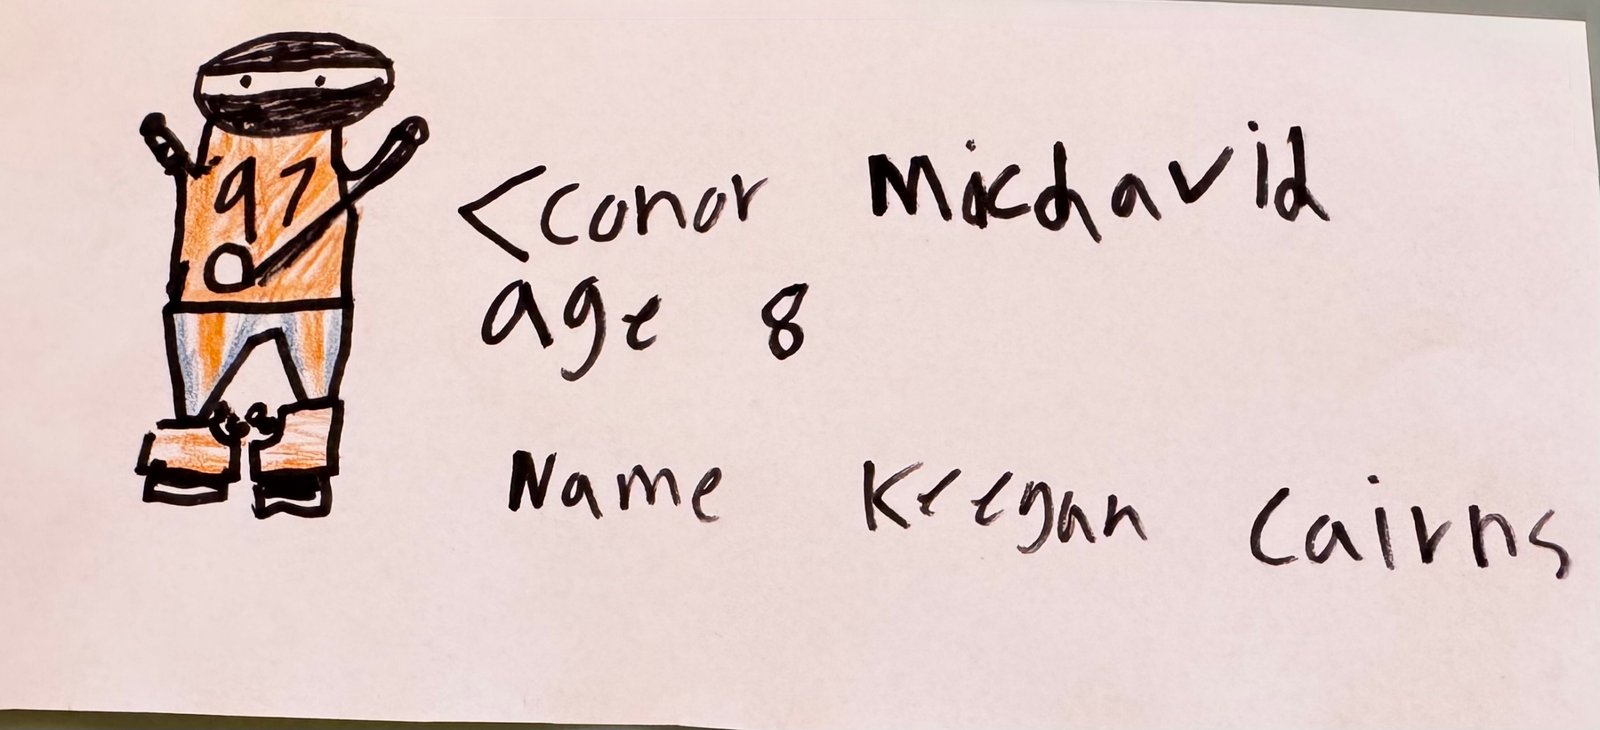 97
<conor Micdavid
age 8
Name Keegan Cairns